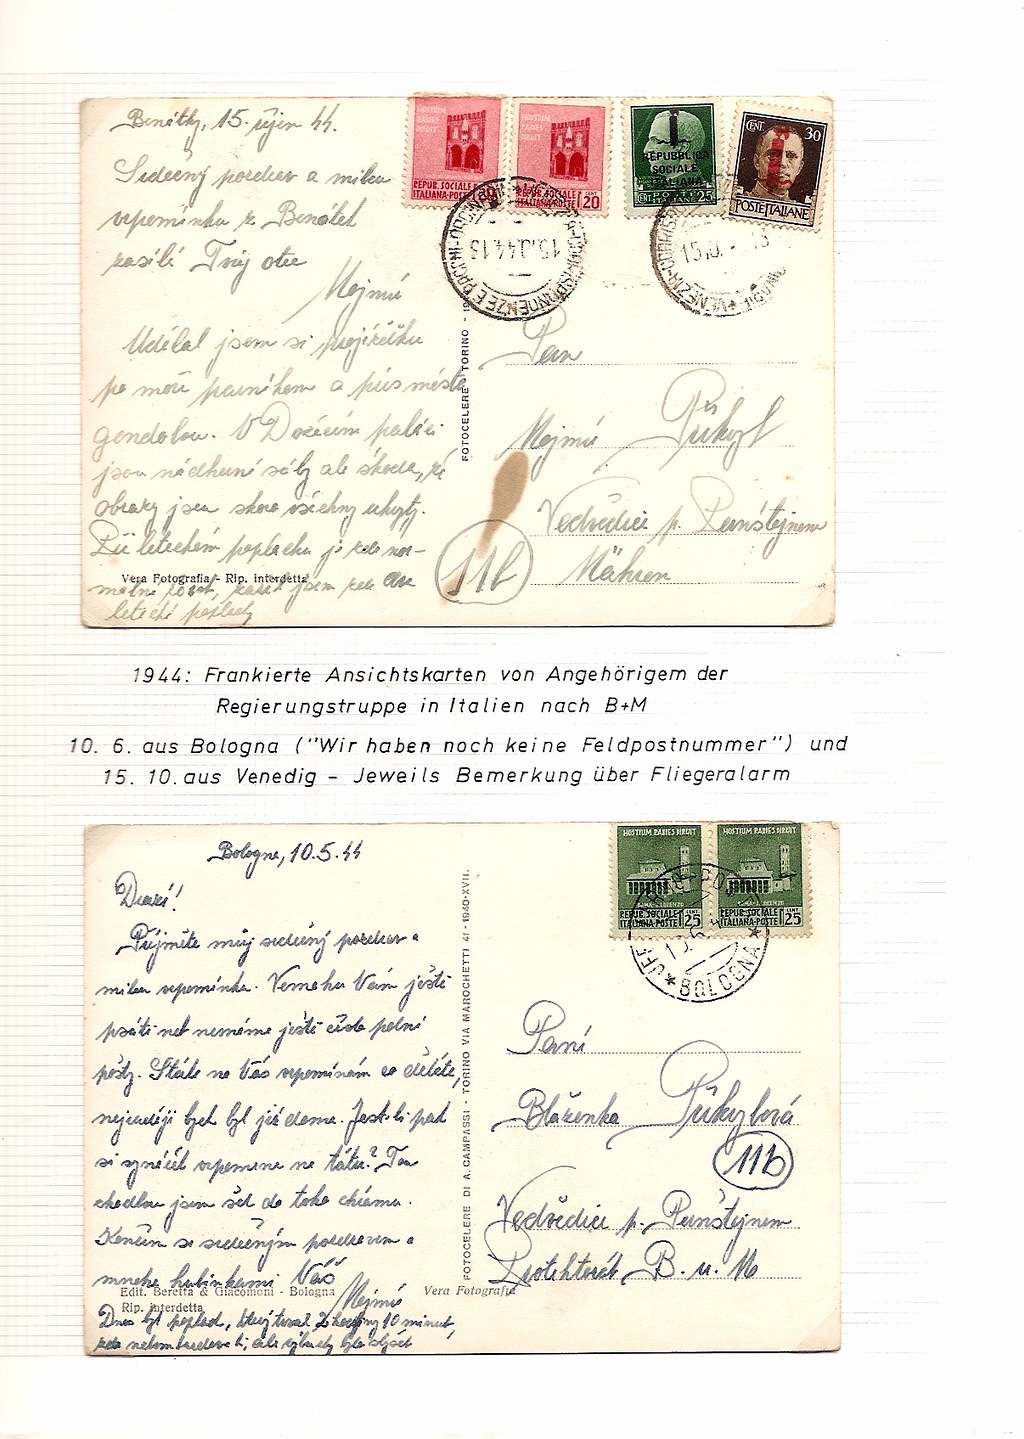 Benátky, 15. říjen 44.
Srdečný pozdrav a milou
vzpomínku z Benátek
zasílá Tvůj otec
Mojmír
Udělal jsem si projížďku
po moři parníkem a přes město
gondolou. V Dožecím paláci
jsou nádherné sály ale škoda, že
obrazy jsou skoro všechny ukryty.
Při leteckém poplachu je zde nor-
Vera Fotografia - Rip. interdetta
letecké poplachy
HOSTIUM RABIES DIRUIT
REPUB. SOCIALE
ITALIANA-POSTE
HOSTIUM RABIES DIRUIT
REPUB. SOCIALE
ITALIANA-POSTE
CENT. 20
REPUBBLICA
SOCIALE
ITALIANA
CENT. 25
CENT. 30
POSTE ITALIANE
15.10.44.13
FOTOCELERE TORINO
Pan
Mojmír Přikryl
Nedvědice p. Pernštejnem
Mähren
11b
1944: Frankierte Ansichtskarten von Angehörigem der
Regierungstruppe in Italien nach B+M
10. 6. aus Bologna ("Wir haben noch keine Feldpostnummer") und
15. 10. aus Venedig - Jeweils Bemerkung über Fliegeralarm
Bologna, 10.5.44
Drazí!
Přijměte můj srdečný pozdrav a
milou vzpomínku. Nemohu Vám ještě
psáti neb nemáme ještě číslo polní
pošty. Stále na Vás vzpomínám co děláte,
nejraději bych byl již doma. Jest-li pak
si synáček vzpomene na tátu? Tou
chodbou jsem šel do toho chrámu.
Končím se srdečným pozdravem a
mnoha hubinkami Váš
Mojmír
Edit. Beretta & Giacomoni - Bologna
Vera Fotografia
Rip. interdetta
Dnes byl poplach, který trval 2 hodiny 10 minut,
FOTOCELERE DI A. CAMPASSI - TORINO VIA MAROCHETTI 41 - 1940-XVII.
HOSTIUM RABIES DIRUIT
ROMA-S. LORENZO
REPUB. SOCIALE
ITALIANA-POSTE
CENT. 25
HOSTIUM RABIES DIRUIT
REPUB. SOCIALE
ITALIANA-POSTE
CENT. 25
BOLOGNA
Paní
Blaženka Přikrylová
11b
Nedvědice p. Pernštejnem
Protektorát B. u. M